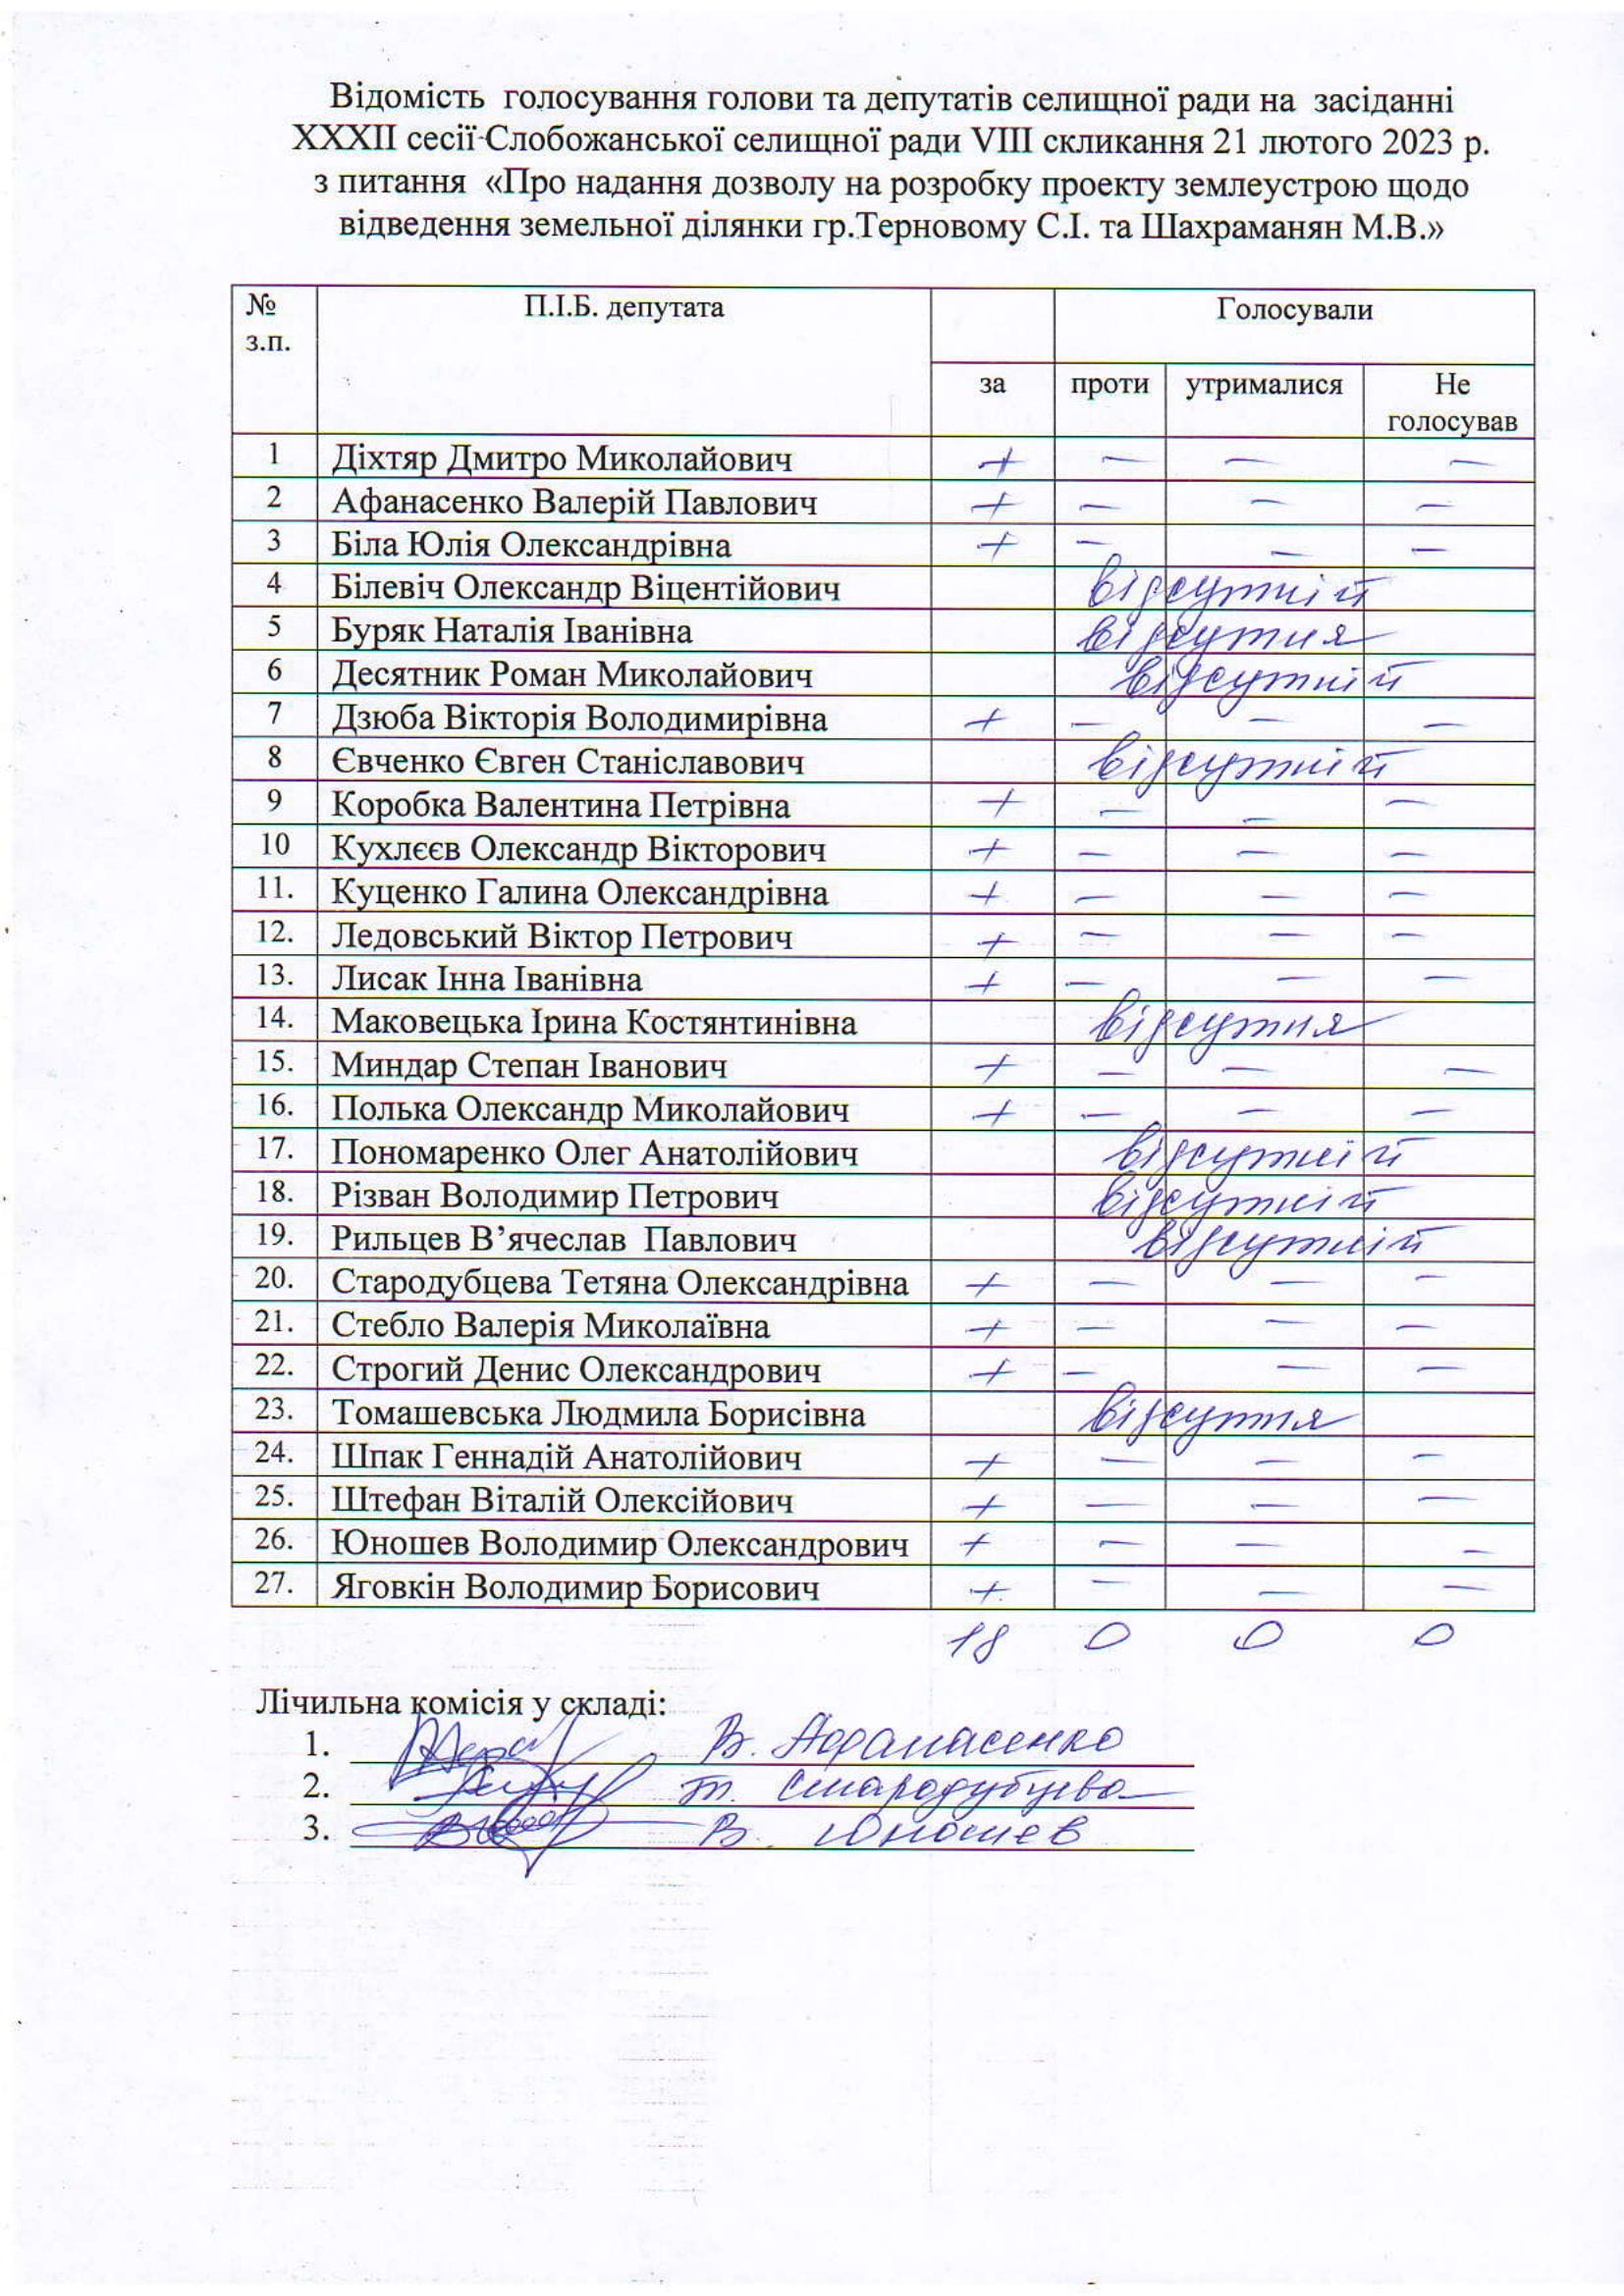 Відомість голосування голови та депутатів селищної ради на засіданні
XXXII сесії Слобожанської селищної ради VIII скликання 21 лютого 2023 р.
з питання «Про надання дозволу на розробку проекту землеустрою щодо
відведення земельної ділянки гр.Терновому С.І. та Шахраманян М.В.»
№ з.п. П.І.Б. депутата Голосували
за проти утрималися Не голосував
1 Діхтяр Дмитро Миколайович + — — —
2 Афанасенко Валерій Павлович + — — —
3 Біла Юлія Олександрівна + — — —
4 Білевіч Олександр Віцентійович відсутній
5 Буряк Наталія Іванівна відсутня
6 Десятник Роман Миколайович відсутній
7 Дзюба Вікторія Володимирівна + — — —
8 Євченко Євген Станіславович відсутній
9 Коробка Валентина Петрівна + — — —
10 Кухлєєв Олександр Вікторович + — — —
11. Куценко Галина Олександрівна + — — —
12. Ледовський Віктор Петрович + — — —
13. Лисак Інна Іванівна + — — —
14. Маковецька Ірина Костянтинівна відсутня
15. Миндар Степан Іванович + — — —
16. Полька Олександр Миколайович + — — —
17. Пономаренко Олег Анатолійович відсутній
18. Різван Володимир Петрович відсутній
19. Рильцев В’ячеслав Павлович відсутній
20. Стародубцева Тетяна Олександрівна + — — —
21. Стебло Валерія Миколаївна + — — —
22. Строгий Денис Олександрович + — — —
23. Томашевська Людмила Борисівна відсутня
24. Шпак Геннадій Анатолійович + — — —
25. Штефан Віталій Олексійович + — — —
26. Юношев Володимир Олександрович + — — —
27. Яговкін Володимир Борисович + — — —
18 0 0 0
Лічильна комісія у складі:
1. В. Афанасенко
2. Т. Стародубцева
3. В. Юношев